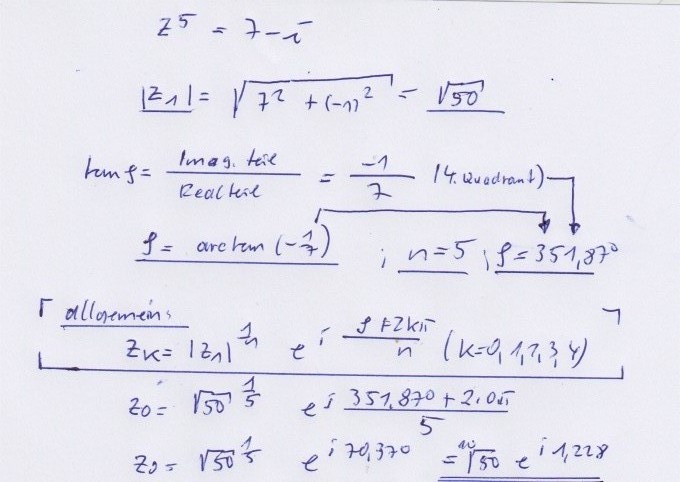 z⁵ = 7-i
|z₁| = √(7² + (-1)²) = √50
tan φ = Imag.teil / Realteil = -1/7 (4. Quadrant)
φ = arctan (-1/7) ; n=5 ; φ = 351,87°
allgemein:
z_K = |z₁|^(1/n) e^(i (φ+2kπ)/n) (K=0,1,2,3,4)
z₀ = √50^(1/5) e^(i (351,87° + 2·0π)/5)
z₀ = √50^(1/5) e^(i 70,37°) = ¹⁰√50 e^(i 1,228)